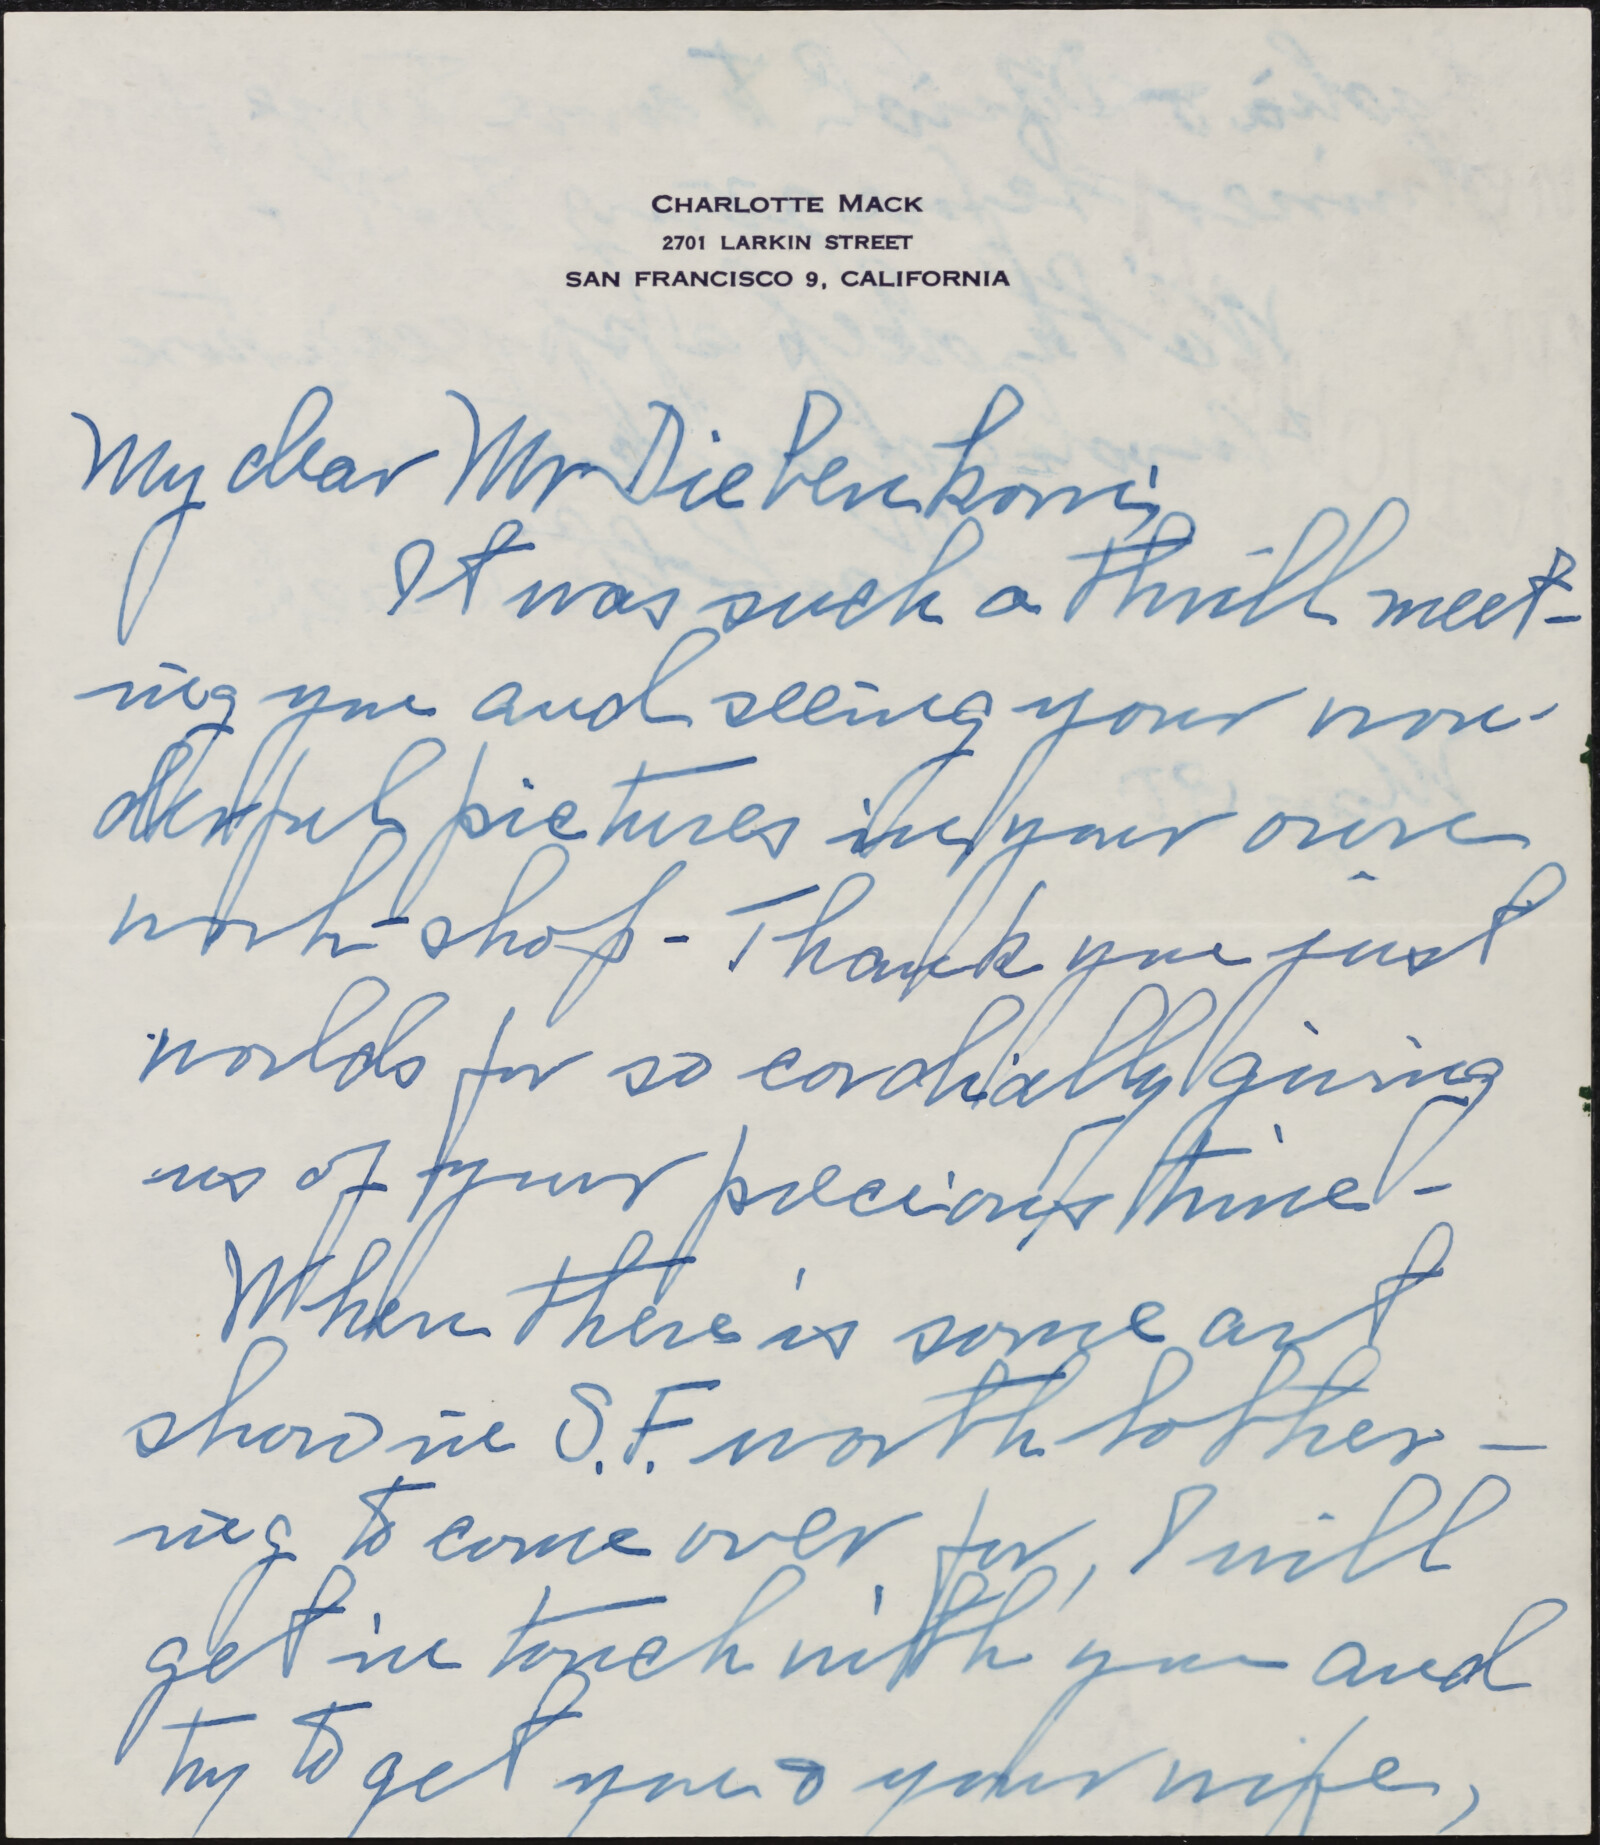 CHARLOTTE MACK
2701 LARKIN STREET
SAN FRANCISCO 9, CALIFORNIA
My dear Mr Diebenkorn;
It was such a thrill meet-
ing you and seeing your won-
derful pictures in your own
work-shop - Thank you just
worlds for so cordially giving
us of your precious time! -
When there is some art
show in S.F. worth bother-
ing to come over for, I will
get in touch with you and
try to get you & your wife,